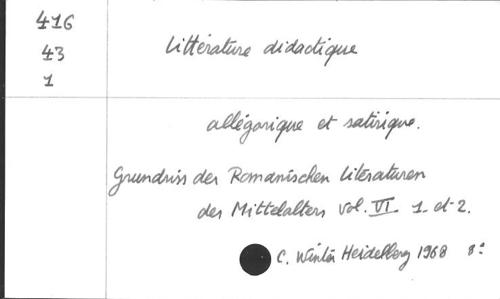 416
43
1
Littérature didactique
allégorique et satirique.
Grundriss der Romanischen Literaturen
des Mittelalters vol. VI 1. et 2.
C. Winter Heidelberg 1968 8°